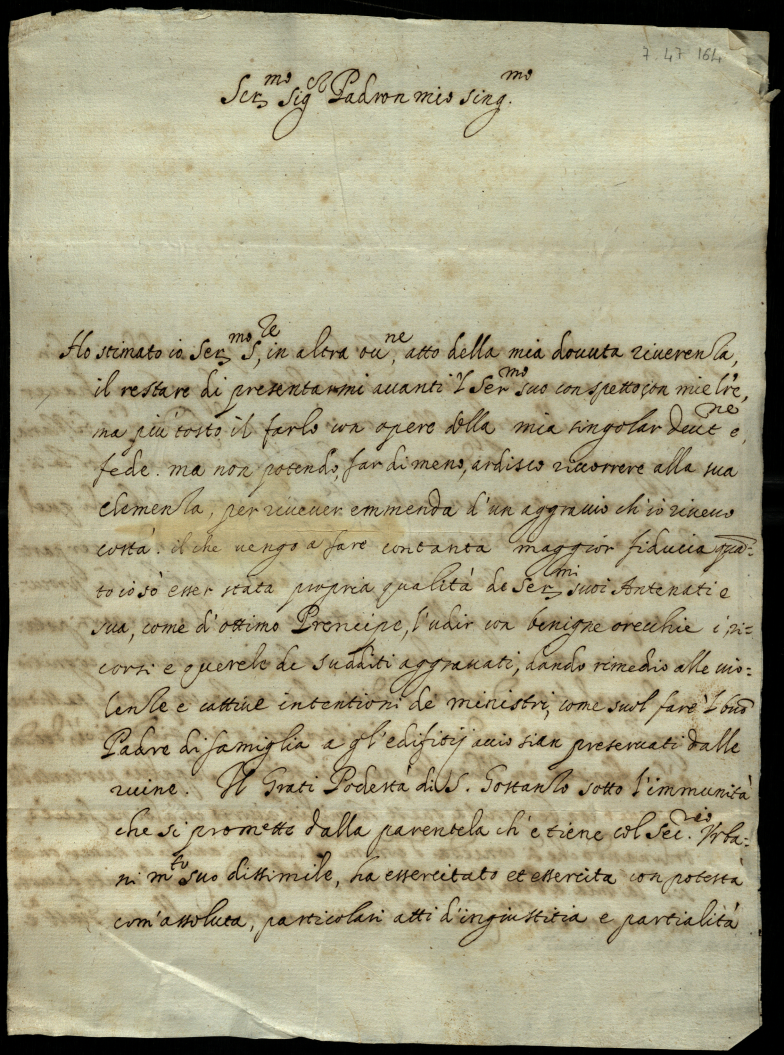 7 47 164
Ser.mo Sig.r Padron mio sing.mo
Ho stimato io Ser.mo S.re, in altra ou.ne, atto della mia douuta riuerenza,
il restare di presentarmi auanti 'l Ser.mo suo conspetto con mie l're,
ma più tosto il farlo con opere della mia singolar deuot.ne e,
fede. ma non potendo, far di meno, ardisco ricorrere alla sua
clemenza, per riceuer emmenda d'un aggrauio ch'io riceuo
costà. il che uengo a fare con tanta maggior fiducia qua-
to io sò esser stata propria qualità de Ser.mi suoi Antenati e
sua, come d'ottimo Prencipe, l'udir con benigne orecchie i ri-
corsi e querele de sudditi aggrauati, dando rimedio alle uio-
lenze e cattiue intentioni de ministri, come suol fare 'l buō
Padre di famiglia a gl'edifitij acciò sian preseruati dalle
ruine. Il Grati Podestà di S. Gostanzo sotto l'immunità
che si promette dalla parentela ch'e tiene col Sec.rio Vrba-
ni m.to suo dissimile, ha essercitato et essercita con potestà
com'assoluta, particolari atti d'ingiustitia e partialità